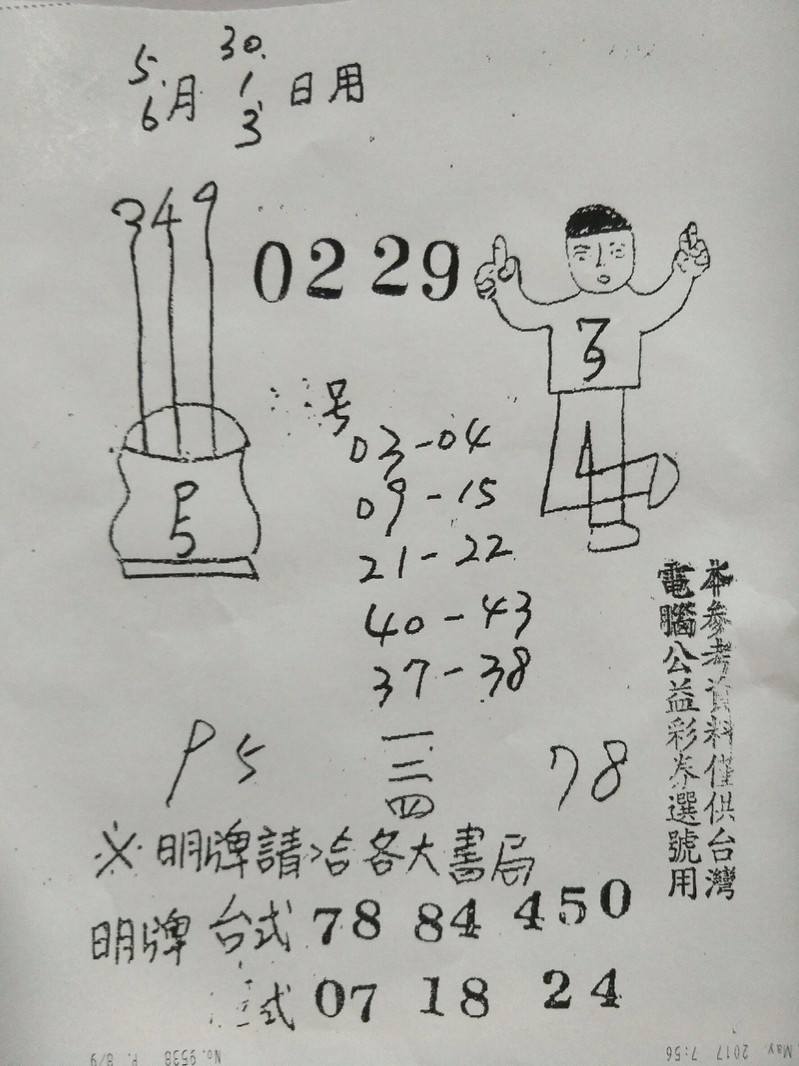 5. 30.
6月 1 日用
3
349
0229
号
03-04
09-15
21-22
40-43
37-38
5
一
三
四
78
※明牌請洽各大書局
明牌 台式 78 84 450
式 07 18 24
本參考資料僅供台灣
電腦公益彩券選號用
No.9538 P. 8/9
May. 2017 7:56